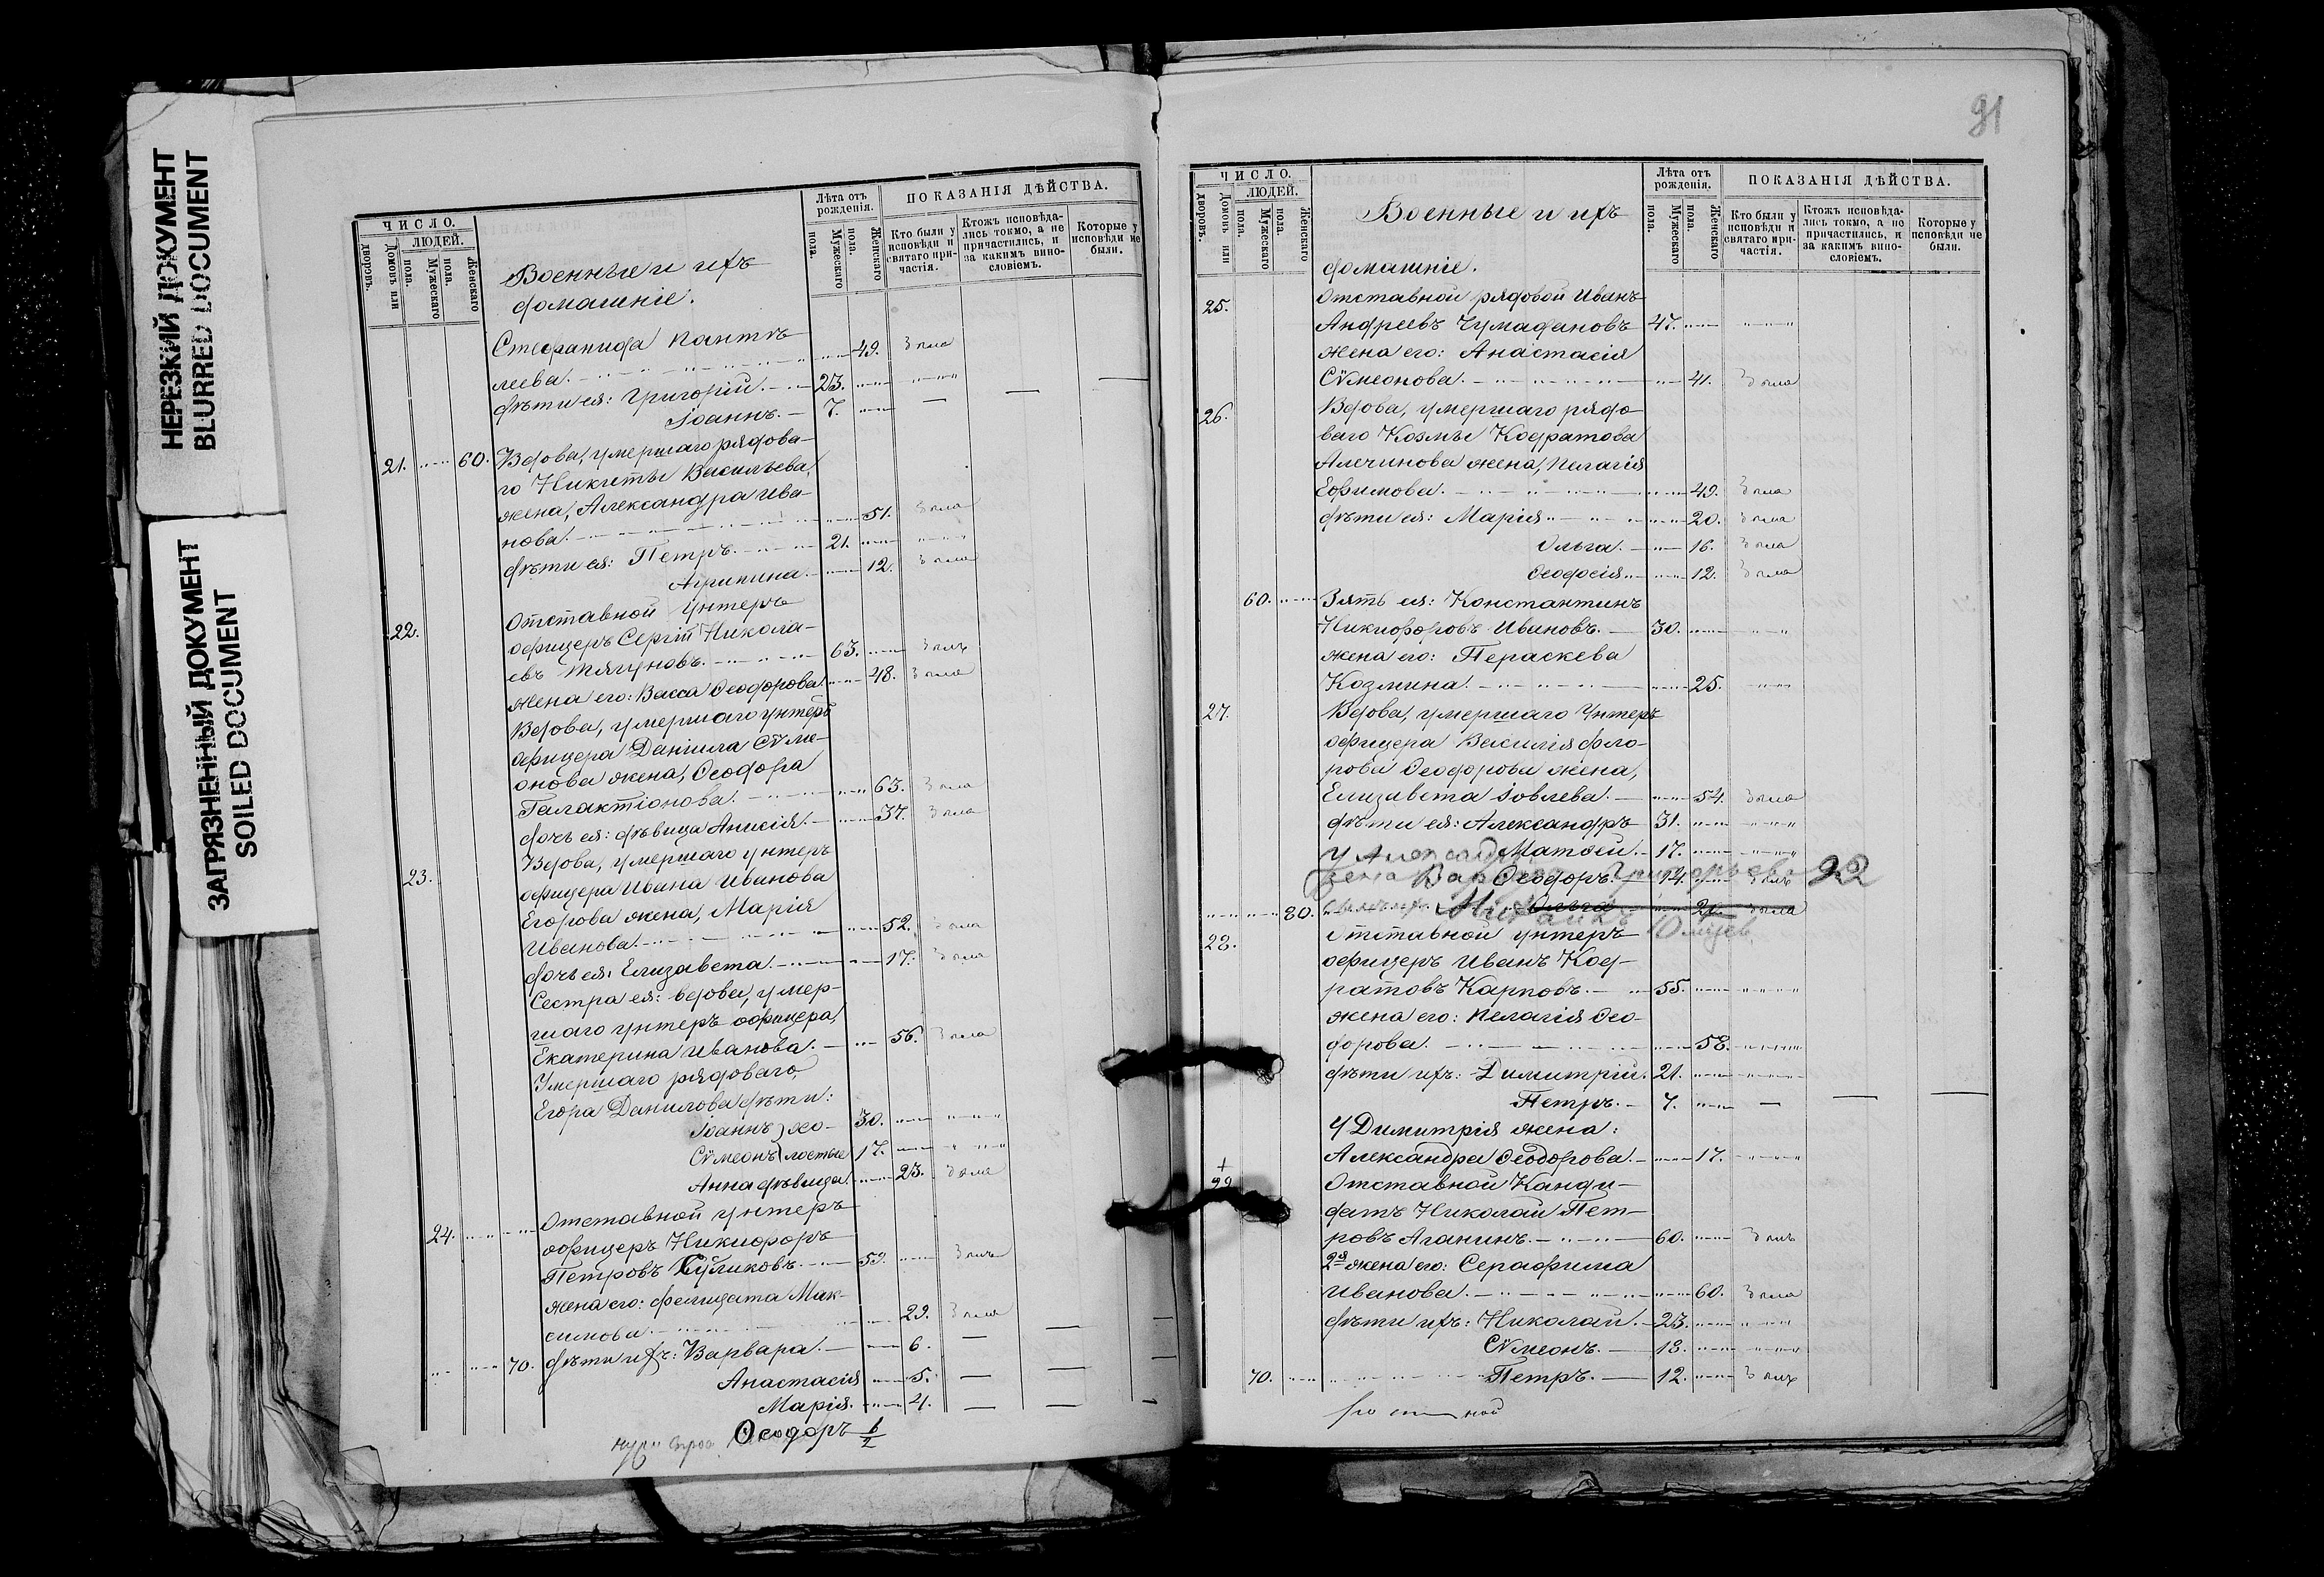 НЕРЕЗКИЙ ДОКУМЕНТ
BLURRED DOCUMENT
ЗАГРЯЗНЕННЫЙ ДОКУМЕНТ
SOILED DOCUMENT
ЧИСЛО.
Домовъ или дворовъ.
ЛЮДЕЙ.
Мужескаго пола.
Женскаго пола.
Военные и ихъ
домашніе.
Лѣта отъ рожденія.
Мужескаго пола.
Женскаго пола.
ПОКАЗАНІЯ ДѢЙСТВА.
Кто были у исповѣди и святаго причастія.
Ктожъ исповѣдались токмо, а не причастились, и за какимъ винословіемъ.
Которые у исповѣди не были.
Стефанида Панте
леева. 49. была
дѣти ея: Григорій. 23.
Іоаннъ. 7.
21. 60. Вдова, умершаго рядова-
го Никиты Васильева
жена, Александра Ива-
нова. 51. была
дѣти ея: Петръ. 21.
Агрипина. 12. была
22. Отставной Унтеръ
офицеръ Сергій Никола-
евъ Тягуновъ. 63. былъ
жена его: Васса Ѳеодорова 48. была
Вдова, умершаго унтеръ
офицера Даніила Сѵме-
онова жена, Ѳеодора
Галактіонова. 63. была
дочь ея: дѣвица Анисія. 37. была
23. Вдова, умершаго унтеръ
офицера Ивана Иванова
Егорова жена, Марія
Иванова. 52. была
дочь ея: Елизавета. 17. была
Сестра ея: вдова, умер-
шаго унтеръ офицера,
Екатерина Иванова. 56. была
Умершаго рядоваго,
Егора Данилова дѣти:
Іоаннъ } хо- 30.
Сѵмеонъ } лостые 17.
Анна дѣвица. 23. была
24. Отставной унтеръ
офицеръ Никифоръ
Петровъ Куликовъ. 59. былъ
жена его: Фелицата Мак-
симова. 29. была
70. дѣти ихъ: Варвара. 6.
Анастасія 5.
Марія. 4.
Ѳеодоръ
91
ЧИСЛО.
Домовъ или дворовъ.
ЛЮДЕЙ.
Мужескаго пола.
Женскаго пола.
Военные и ихъ
домашніе.
Лѣта отъ рожденія.
Мужескаго пола.
Женскаго пола.
ПОКАЗАНІЯ ДѢЙСТВА.
Кто были у исповѣди и святаго причастія.
Ктожъ исповѣдались токмо, а не причастились, и за какимъ винословіемъ.
Которые у исповѣди не были.
25. Отставной рядовой Иванъ
Андреевъ Чумадановъ 47.
жена его: Анастасія
Сѵмеонова. 41. была
26. Вдова, умершаго рядо-
ваго Козмы Кодратова
Алечинова жена, Пелагія
Ефимова. 49. была
дѣти ея: Марія 20. была
Ольга. 16. была
Ѳеодосія 12. была
60. Зять ея: Константинъ
Никифоровъ Ивановъ. 30.
жена его: Параскева
Козмина. 25.
27. Вдова, умершаго Унтеръ
офицера Василія Фло-
рова Ѳеодорова жена,
Елизавета Іовлева. 54. была
дѣти ея: Александръ 31.
Матѳей. 17.
У Александра
жена Варвара Григорьева 22
Ѳеодоръ. 14. былъ
80. Ольга 21. была
Михаилъ 10 мцев.
28. Отставной унтеръ
офицеръ Иванъ Код-
ратовъ Карповъ. 55.
жена его: Пелагія Ѳео-
дорова. 58.
дѣти ихъ: Димитрій. 21.
Петръ. 7.
У Димитрія жена:
Александра Ѳеодорова. 17.
+
29 Отставной Канди-
датъ Николай Пет-
ровъ Аганинъ. 60. былъ
2я жена его: Серафима
Иванова. 60. была
дѣти ихъ: Николай. 23.
Сѵмеонъ. 13.
70. Петръ. 12. былъ